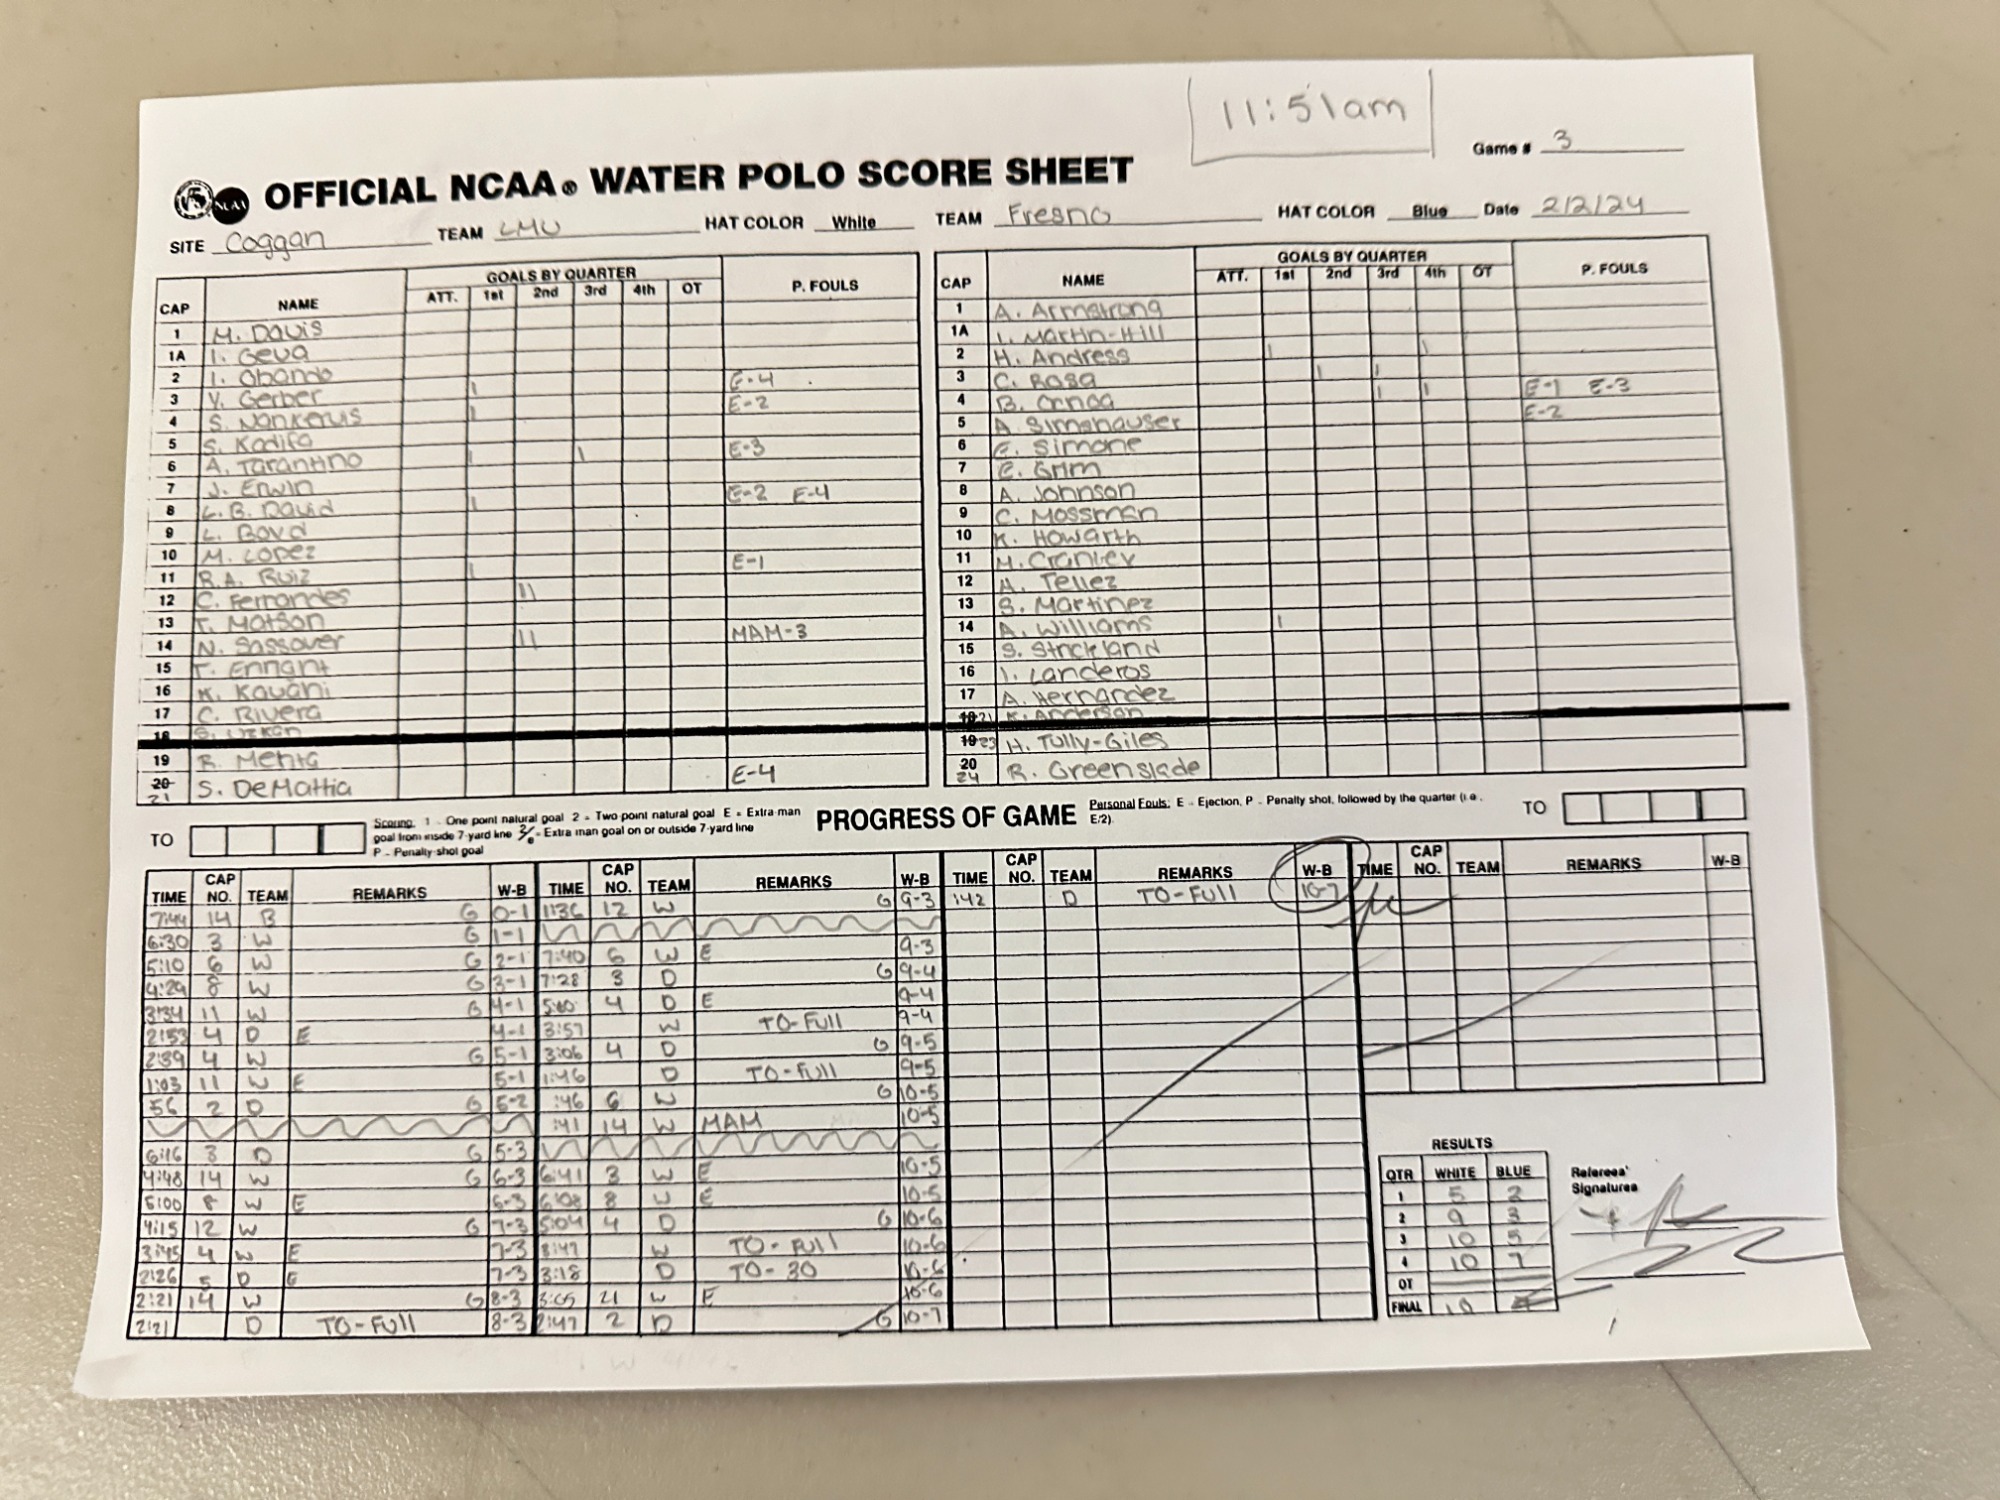 11:51am
Game # 3
OFFICIAL NCAA® WATER POLO SCORE SHEET
SITE Coggan TEAM LMU HAT COLOR White TEAM Fresno HAT COLOR Blue Date 2/2/24
CAP NAME GOALS BY QUARTER ATT. 1st 2nd 3rd 4th OT P. FOULS
1 M. Davis
1A I. Geva
2 I. Obando E-4
3 V. Gerber 1 E-2
4 S. Nankervis 1
5 S. Kadifa E-3
6 A. Tarantino 1 1
7 J. Erwin E-2 E-4
8 L.B. David 1
9 L. Boyd
10 M. Lopez E-1
11 R.A. Ruiz 1
12 C. Fernandes 11
13 T. Matson
14 N. Sassover 11 MAM-3
15 T. Ennant
16 K. Kavani
17 C. Rivera
18
19 R. Mehta
20 21 S. DeMattia E-4
CAP NAME GOALS BY QUARTER ATT. 1st 2nd 3rd 4th OT P. FOULS
1 A. Armstrong
1A I. Martin-Hill
2 H. Andress 1 1
3 C. Rosa 1 1
4 B. 1 1 E-1 E-3
5 A. Simshauser E-2
6 E. Simone
7 E. Grim
8 A. Johnson
9 C. Mossman
10 K. Howarth
11 M. Cranley
12 A. Tellez
13 S. Martinez
14 A. Williams 1
15 S. Strickland
16 I. Landeros
17 A. Hernandez
18 21 K. Anderson
19 23 H. Tully-Giles
20 24 R. Greenslade
TO
Scoring: 1 - One point natural goal 2 - Two point natural goal E - Extra-man
goal from inside 7-yard line - Extra man goal on or outside 7-yard line
P - Penalty-shot goal
PROGRESS OF GAME
Personal Fouls: E - Ejection, P - Penalty shot, followed by the quarter (i.e.,
E/2).
TO
TIME CAP NO. TEAM REMARKS W-B
7:44 14 B G 0-1
6:30 3 W G 1-1
5:10 6 W G 2-1
4:29 8 W G 3-1
3:34 11 W G 4-1
2:53 4 D E 4-1
2:39 4 W G 5-1
1:03 11 W E 5-1
56 2 D G 5-2
6:16 3 D G 5-3
4:48 14 W G 6-3
5:00 8 W E 6-3
4:15 12 W G 7-3
3:45 4 W E 7-3
2:26 5 D E 7-3
2:21 14 W G 8-3
2:21 D TO-Full 8-3
TIME CAP NO. TEAM REMARKS W-B
1:36 12 W G 9-3
7:40 6 W E 9-3
7:28 3 D G 9-4
5:00 4 D E 9-4
3:57 W TO-Full 9-4
3:06 4 D G 9-5
1:46 D TO-Full 9-5
:46 6 W G 10-5
:41 14 W MAM 10-5
6:41 3 W E 10-5
6:08 8 W E 10-5
5:04 4 D G 10-6
3:47 W TO-Full 10-6
3:18 D TO-30 10-6
3:05 21 W E 10-6
2:47 2 D G 10-7
TIME CAP NO. TEAM REMARKS W-B
:42 D TO-Full 10-7
TIME CAP NO. TEAM REMARKS W-B
RESULTS
QTR WHITE BLUE
1 5 2
2 9 3
3 10 5
4 10 7
OT
FINAL 10 7
Referees'
Signatures